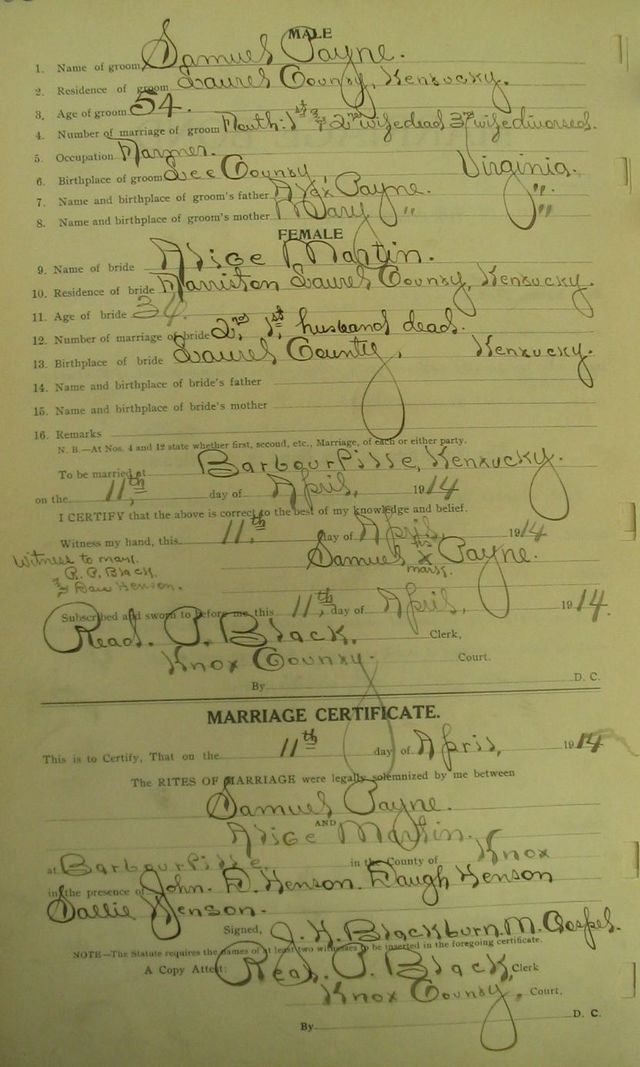 MALE
1. Name of groom Samuel Payne.
2. Residence of groom Laurel County, Kentucky.
3. Age of groom 54.
4. Number of marriage of groom Fourth. 1st & 2nd wife dead 3rd wife divorced.
5. Occupation Farmer.
6. Birthplace of groom Lee County, Virginia.
7. Name and birthplace of groom's father Alex Payne. "
8. Name and birthplace of groom's mother Mary " "
FEMALE
9. Name of bride Alice Martin.
10. Residence of bride Laurel County, Kentucky.
11. Age of bride 34.
12. Number of marriage of bride 2nd, 1st, husband dead.
13. Birthplace of bride Laurel County, Kentucky.
14. Name and birthplace of bride's father
15. Name and birthplace of bride's mother
16. Remarks
N. B.—At Nos. 4 and 12 state whether first, second, etc., Marriage, of each or either party.
To be married at Barbourville, Kentucky.
on the 11th day of April, 1914
I CERTIFY that the above is correct to the best of my knowledge and belief.
Witness my hand, this 11th day of April, 1914
his
Samuel x Payne.
mark.
Witness to mark.
R. P. Black.
& Dan Henson.
Subscribed and sworn to before me this 11th, day of April, 1914.
Read. P. Black. Clerk,
Knox County. Court.
By D. C.
MARRIAGE CERTIFICATE.
This is to Certify, That on the 11th day of April, 1914
The RITES OF MARRIAGE were legally solemnized by me between
Samuel Payne.
AND
Alice Martin.
at Barbourville. in the County of Knox
in the presence of John. D. Henson. Daugh Henson
Sallie Henson.
Signed, J. H. Blackburn. M. Gospel.
NOTE—The Statute requires the names of at least two witnesses to be inserted in the foregoing certificate.
A Copy Attest: Read. P. Black, Clerk
Knox County, Court.
By D. C.